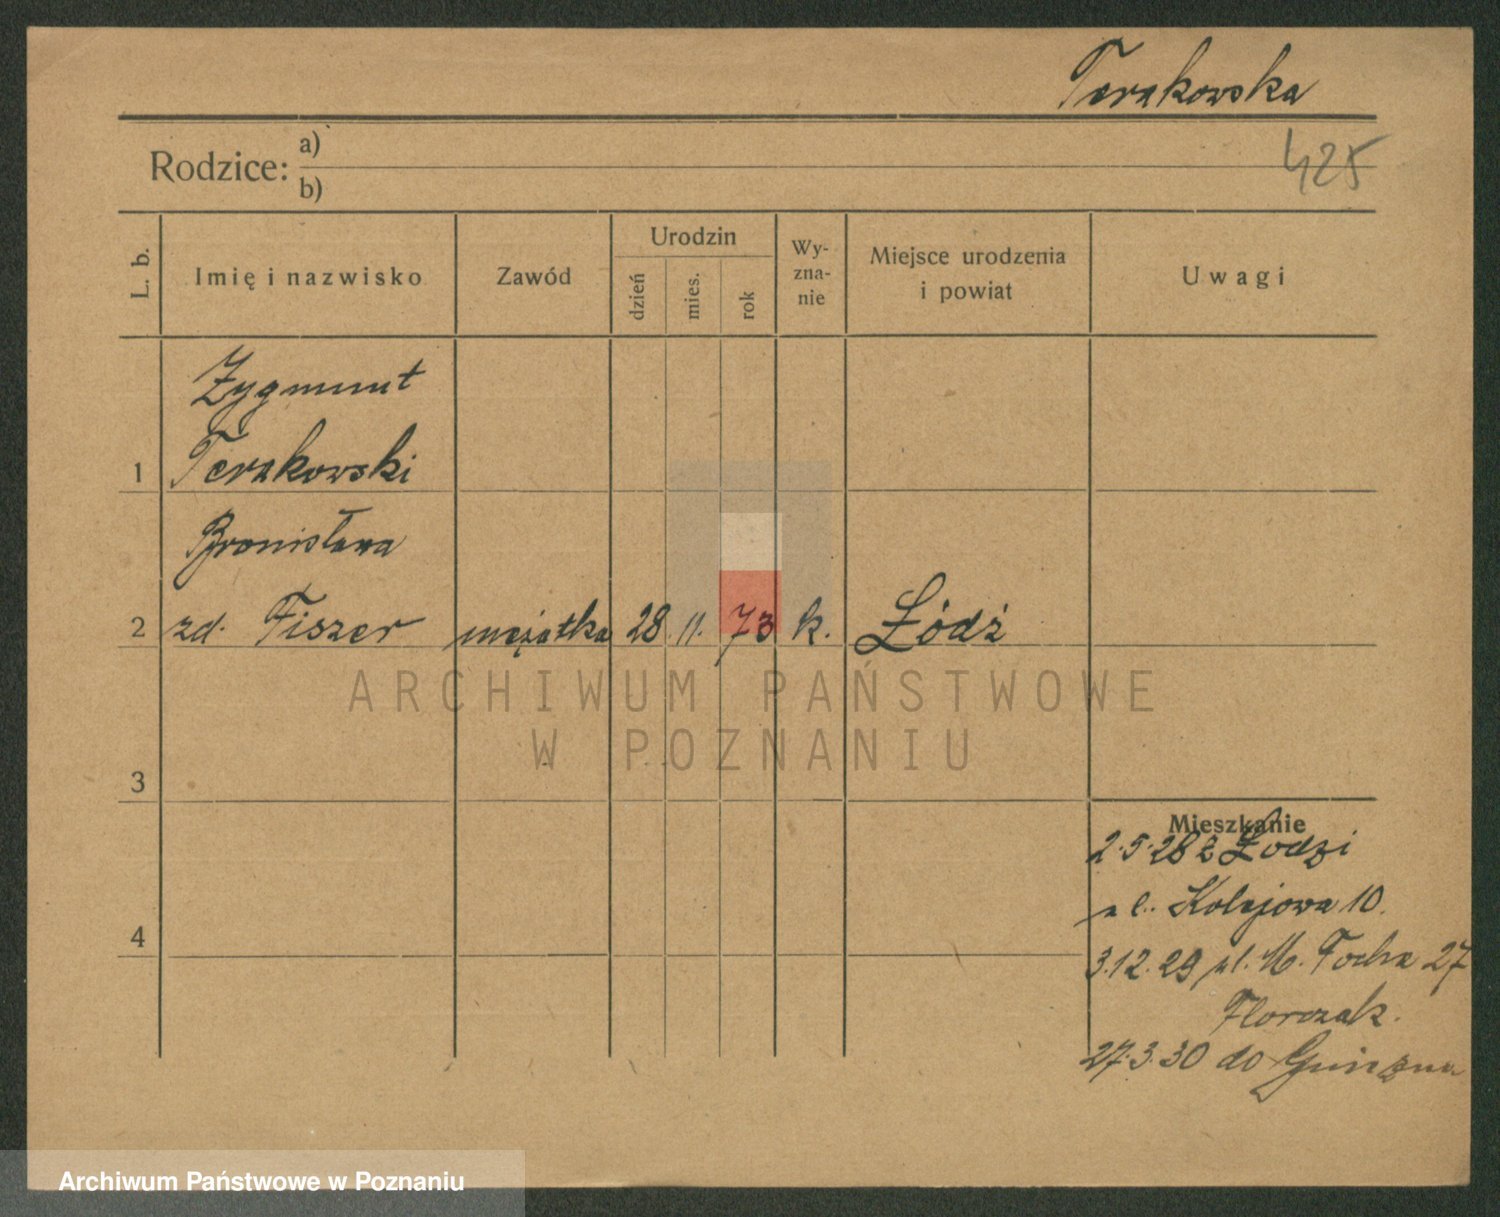 Terakowska
Rodzice: a)
b)
425
L. b.
Imię i nazwisko
Zawód
Urodzin
dzień
mies.
rok
Wy-
zna-
nie
Miejsce urodzenia
i powiat
Uwagi
Zygmunt
1 Terakowski
Bronisława
2 zd. Fiszer mężatka 28 11. 73 k. Łódź
ARCHIWUM PAŃSTWOWE
W POZNANIU
3
Mieszkanie
2.5.28 z Łodzi
ul. Kolejowa 10.
4
3.12.29 pl. M. Focha 27
Florczak.
27.3.30 do Gniezna
Archiwum Państwowe w Poznaniu